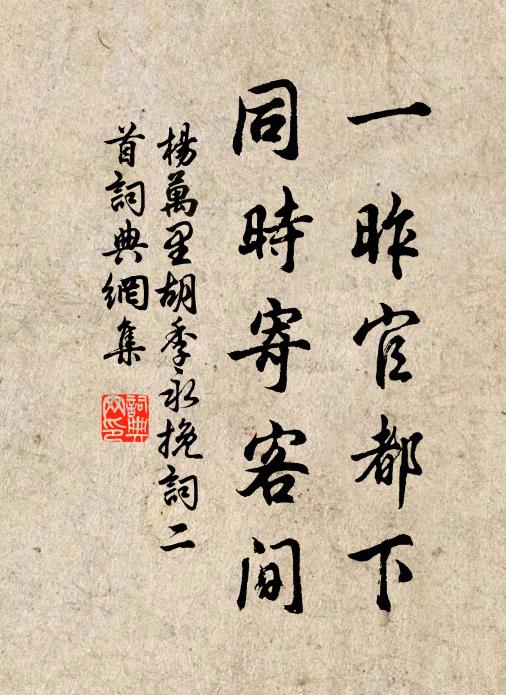 一昨官都下
同時寄客間
楊萬里胡季永挽詞二
首詞典網集
詞典
網印